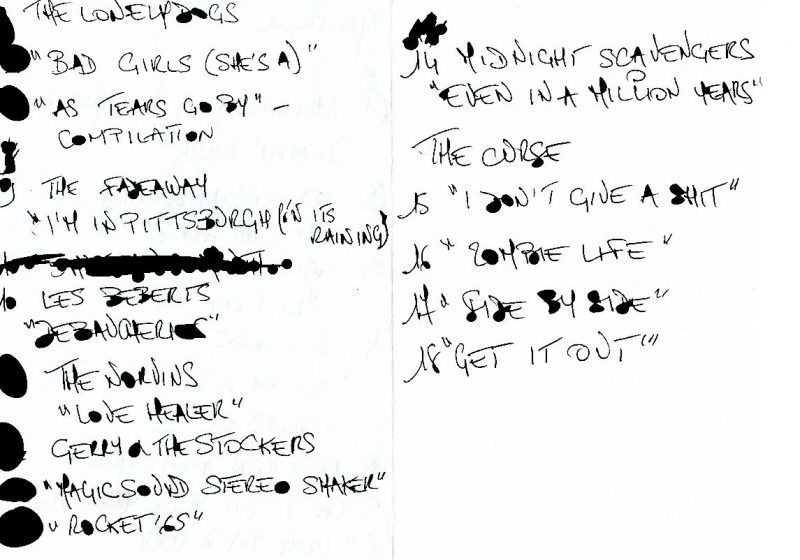 THE LONELYDOGS
"BAD GIRLS (SHE'S A)"
"AS TEARS GO BY" -
COMPILATION
9 THE FADEAWAY
"I'M IN PITTSBURGH (N ITS
RAINING)
10 LES BEBERTS
"DEBAUCHERIES"
THE NORVINS
"LOVE HEALER"
GERRY N THE STOCKERS
"MAGIC SOUND STEREO SHAKER"
"ROCKET '65"
14 MIDNIGHT SCAVENGERS
"EVEN IN A MILLION YEARS"
THE CURSE
15 "I DON'T GIVE A SHIT"
16 "ZOMBIE LIFE"
17 "SIDE BY SIDE"
18 "GET IT OUT"